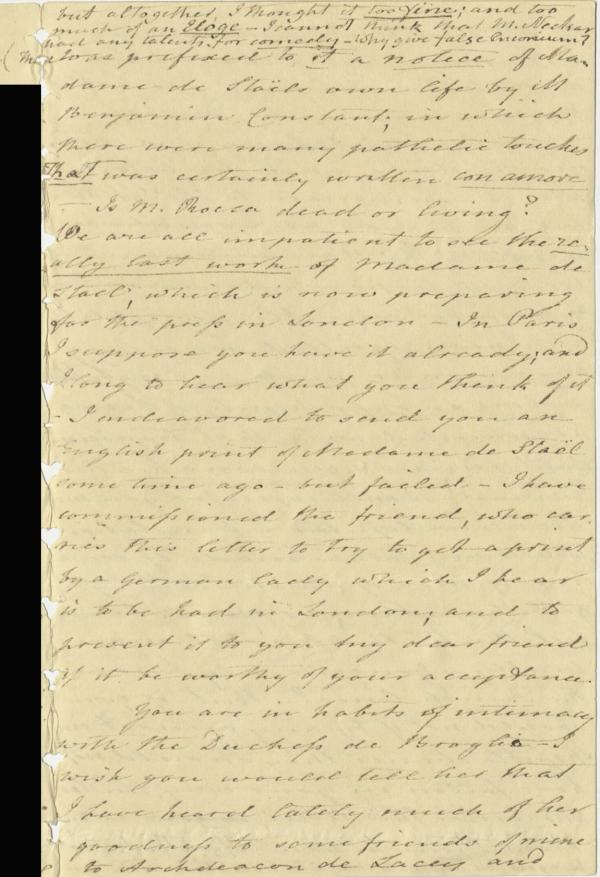 but altogether I thought it too fine; and too
much of an Eloge – I cannot think that M. Neckar
had any talents for comedy – Why give false Encomium?
( There was prefixed to it a notice of Ma-
dame de Staëls own life by M
Benjamin Constant; in which
there were many pathetic touches
That was certainly written con amore
– Is M. Rocca dead or living?
We are all impatient to see the re-
ally last work of Madame de
Stael, which is now preparing
for the press in London – In Paris
I suppose you have it already; and
I long to hear what you think of it
– I endeavored to send you an
English print of Madame de Staël
some time ago – but failed – I have
commissioned the friend, who car-
ries this letter to try to get a print
by a German lady which I hear
is to be had in London; and to
present it to you my dear friend
if it be worthy of your acceptance.
You are in habits of intimacy
with the Duchess de Broglio – I
wish you would tell her that
I have heard lately much of her
goodness to some friends of mine
to Archdeacon de Lacey and